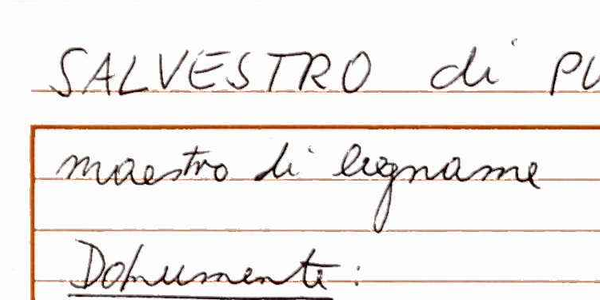 SALVESTRO di PU
maestro di legname
Dokumente: